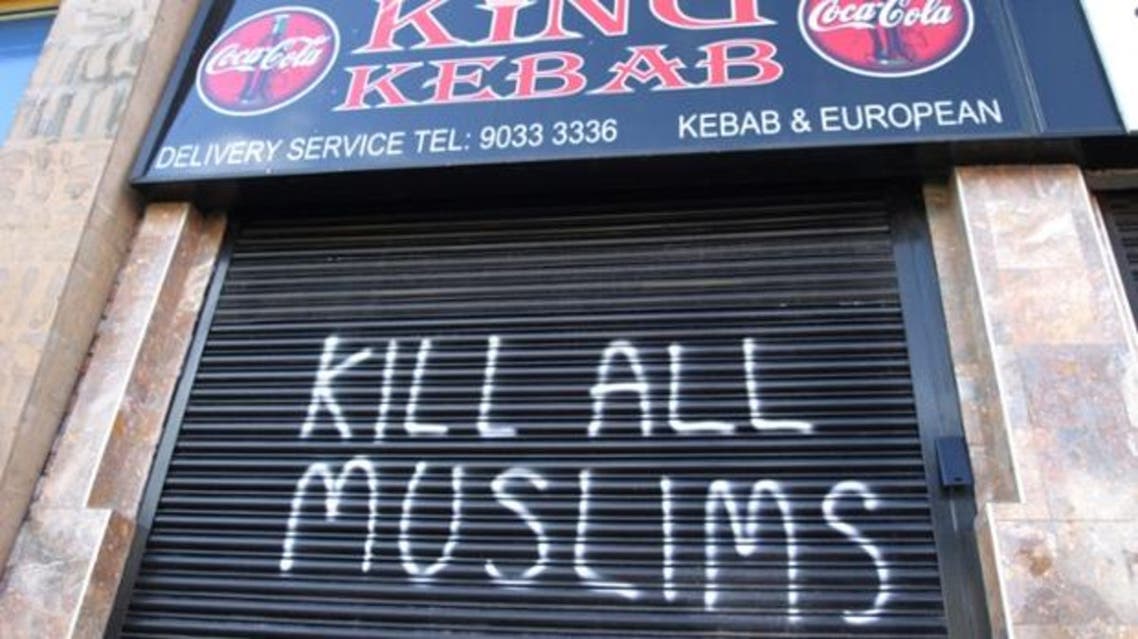 KING
Coca-Cola
Coca-Cola
KEBAB
DELIVERY SERVICE TEL: 9033 3336
KEBAB & EUROPEAN
KILL ALL
MUSLIMS